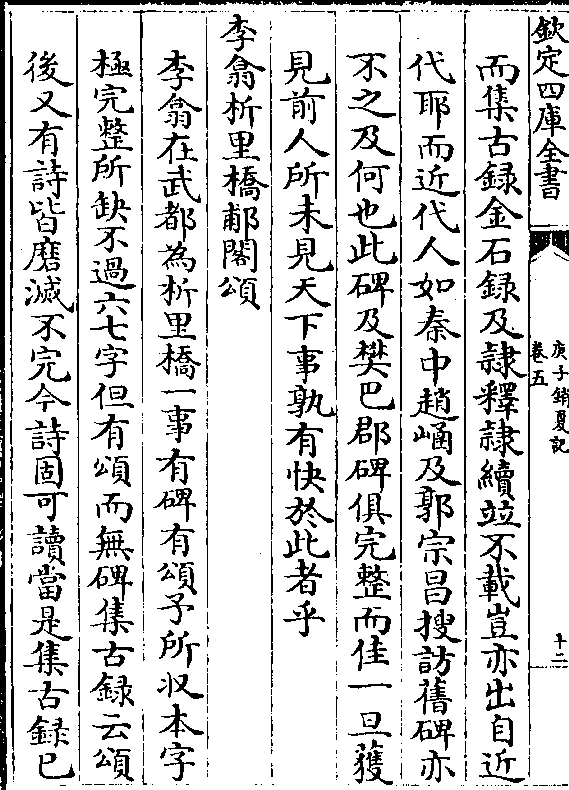 欽定四庫全書
庚子銷夏記
卷五
十二
而集古録金石録及隷釋隷續竝不載豈亦出自近
代耶而近代人如秦中趙崡及郭宗昌搜訪舊碑亦
不之及何也此碑及樊巴郡碑俱完整而佳一旦獲
見前人所未見天下事孰有快於此者乎
李翕析里橋郙閣頌
李翕在武都為析里橋一事有碑有頌予所収本字
極完整所缺不過六七字但有頌而無碑集古録云頌
後又有詩皆磨滅不完今詩固可讀當是集古録已